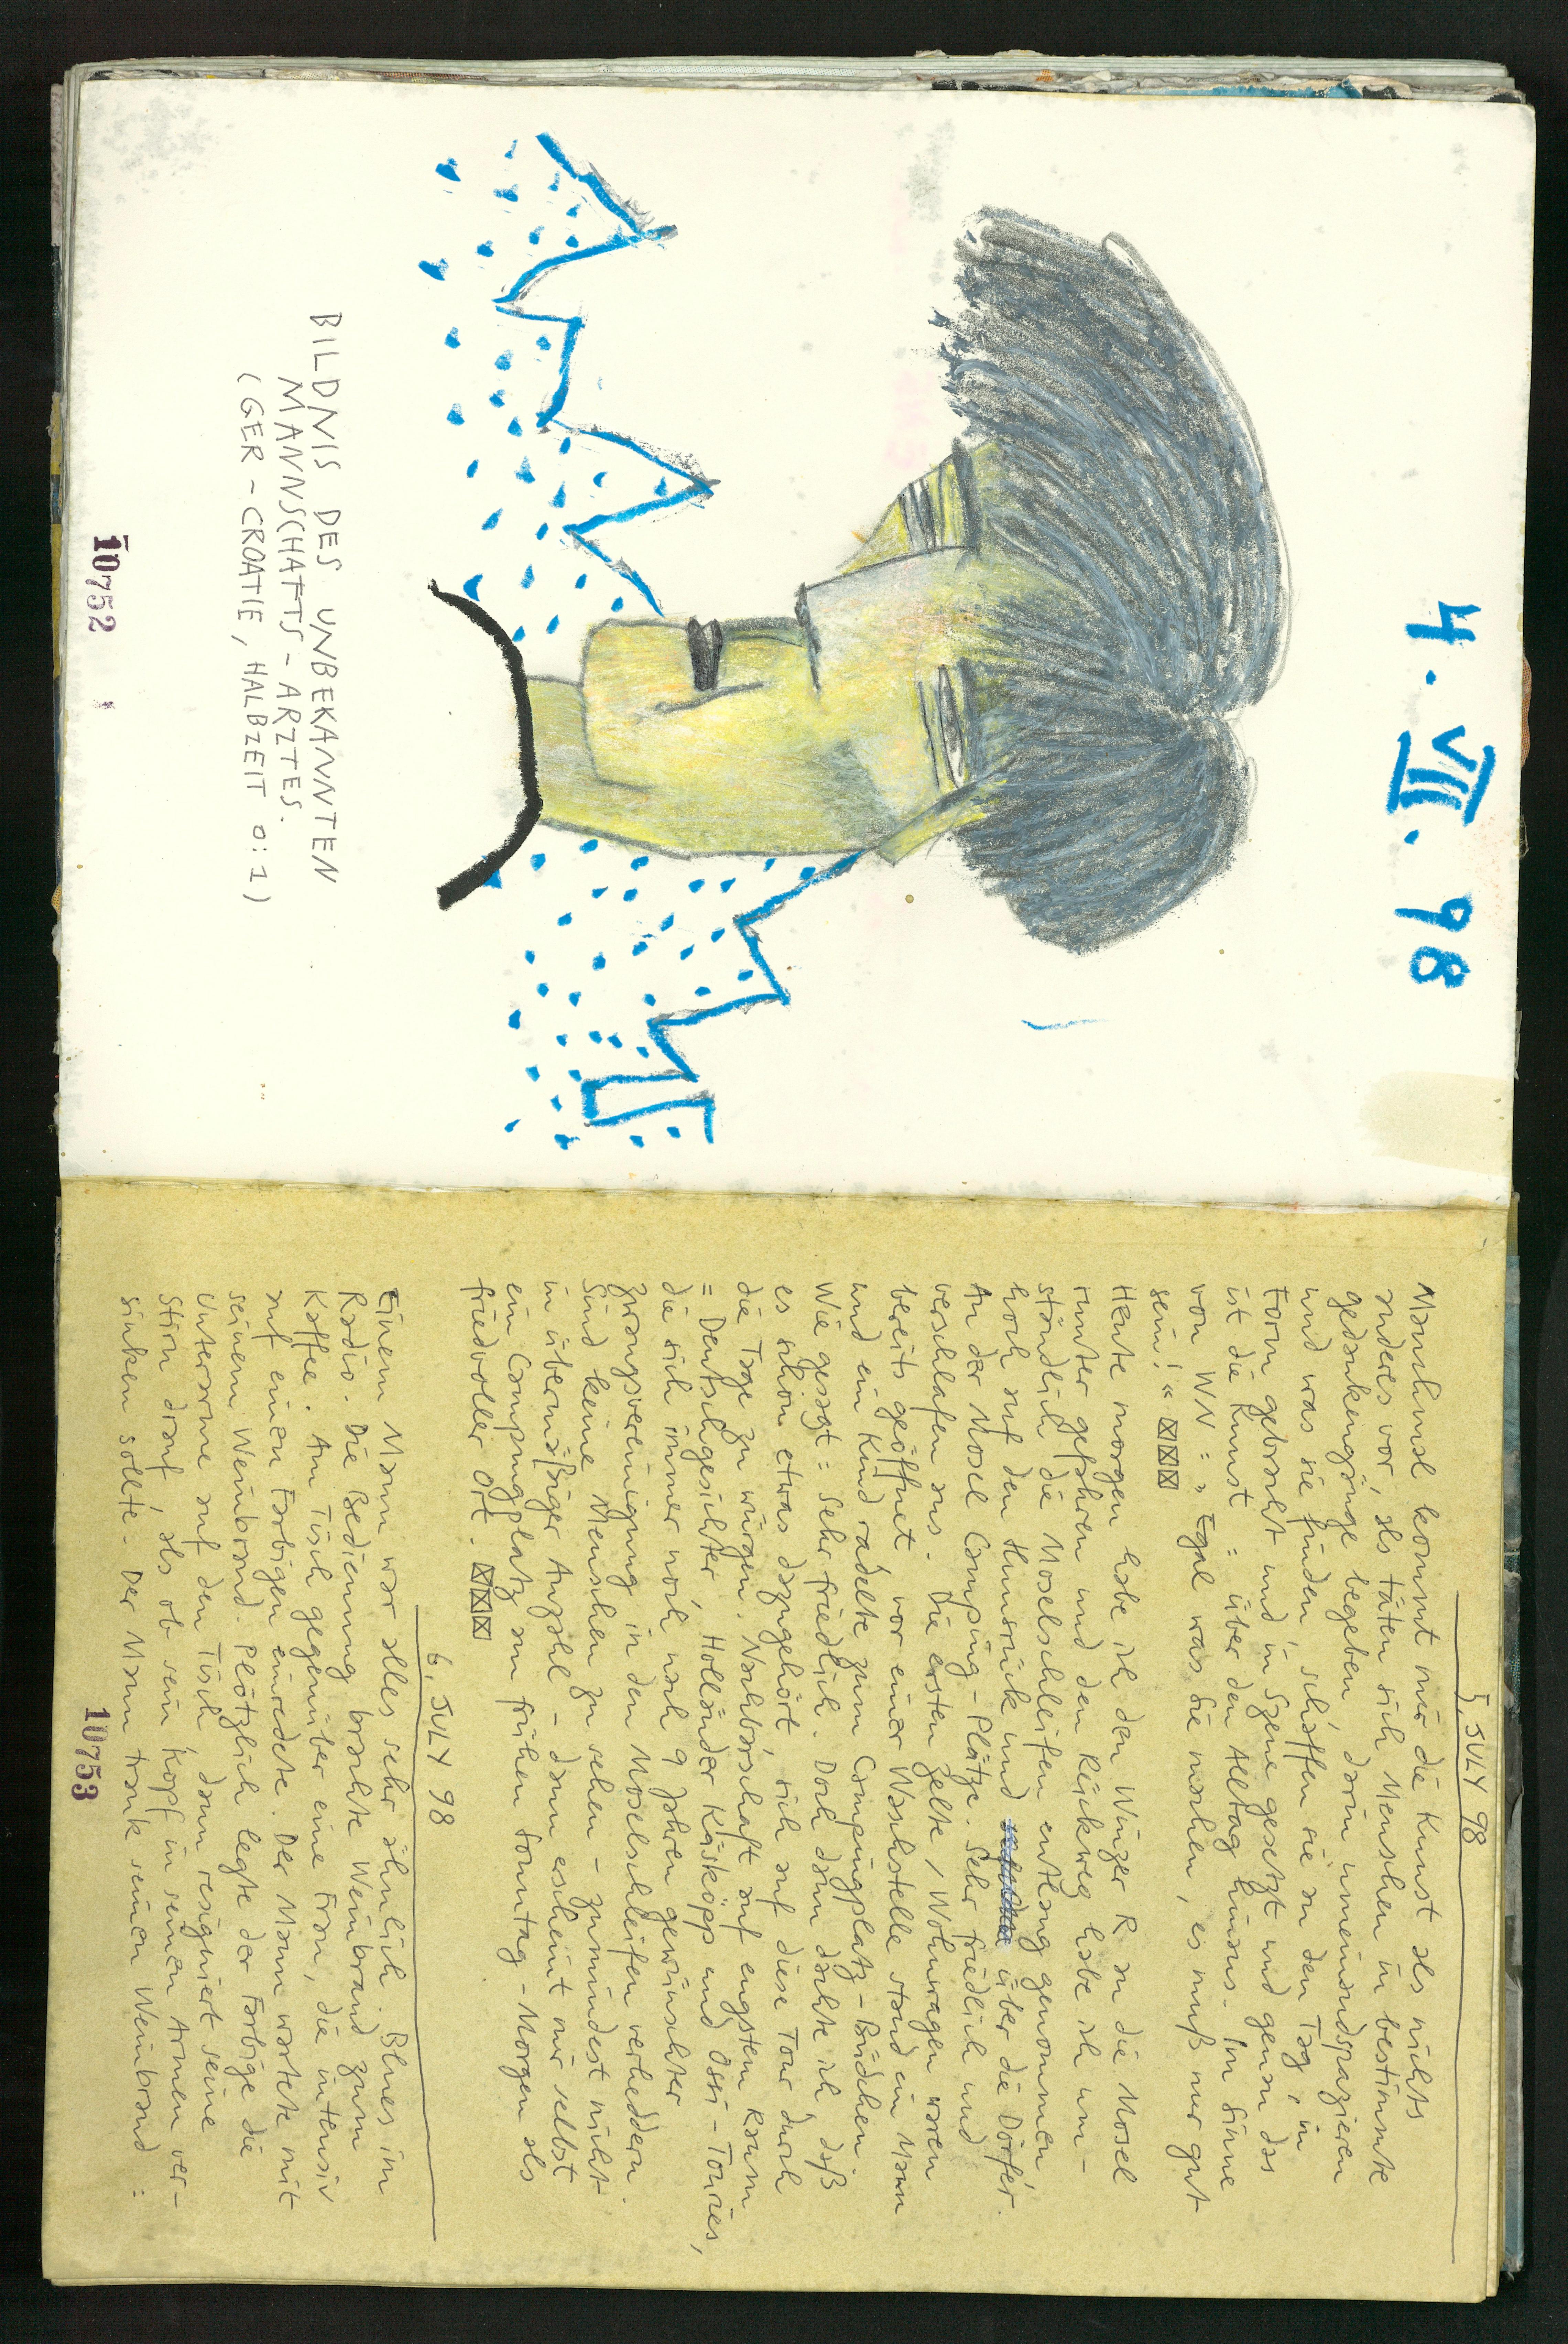 4. VII. 98
BILDNIS DES UNBEKANNTEN
MANNSCHAFTS-ARZTES.
(GER-CROATIE, HALBZEIT 0:1)
10752
5. JULY 98
Manchmal kommt mir die Kunst als nichts
anderes vor, als täten sich Menschen in bestimmte
gedankengänge begeben, darin umeinandspazieren
und was sie finden, schaffen sie an den Tag, in
Form gebracht und in Szene gesetzt und genau das
ist die Kunst: über den Alltag hinaus. Im Sinne
von WN: „Egal was Sie machen, es muß nur gut
sein!“
Heute morgen habe ich den Winzer R an die Mosel
runter gefahren und den Rückweg habe ich um-
ständlich die Moselschleifen entlang genommen
hoch auf den Hunsrück und über die Dörfer.
An der Mosel Camping-Plätze. Sehr friedlich und
verschlafen aus. Die ersten Zelte / Wohnwagen waren
bereits geöffnet vor einer Waschstelle stand ein Mann
und ein Kind radelte zum Campingplatz-Büdchen
Wie gesagt: Sehr friedlich. Doch dann dachte ich, daß
es schon etwas dazugehört, sich auf diese Tour durch
die Tage zu würgen. Nachbarschaft auf engstem Raum
= Deutschgesichter, Holländer Käsköpp und Ossi-Touries,
die sich immer noch nach 9 Jahren gewünschter
Zwangsvereinigung in den Moselschleifen verheddern.
Sind keine Menschen zu sehen - zumindest nicht
in übermäßiger Anzahl - dann erscheint mir selbst
ein Campingplatz am frühen Sonntag-Morgen als
friedvoller Ort.
6. JULY 98
Einem Mann war alles sehr ähnlich. Blues im
Radio. Die Bedienung brachte Weinbrand zum
Kaffee. Am Tisch gegenüber eine Frau, die intensiv
auf einen Farbigen einredete. Der Mann wartete mit
seinem Weinbrand. Plötzlich legte der Farbige die
Unterarme auf den Tisch, dann resigniert seine
Stirn drauf, als ob sein Kopf in seinen Armen ver-
sinken sollte. Der Mann trank seinen Weinbrand:
10753